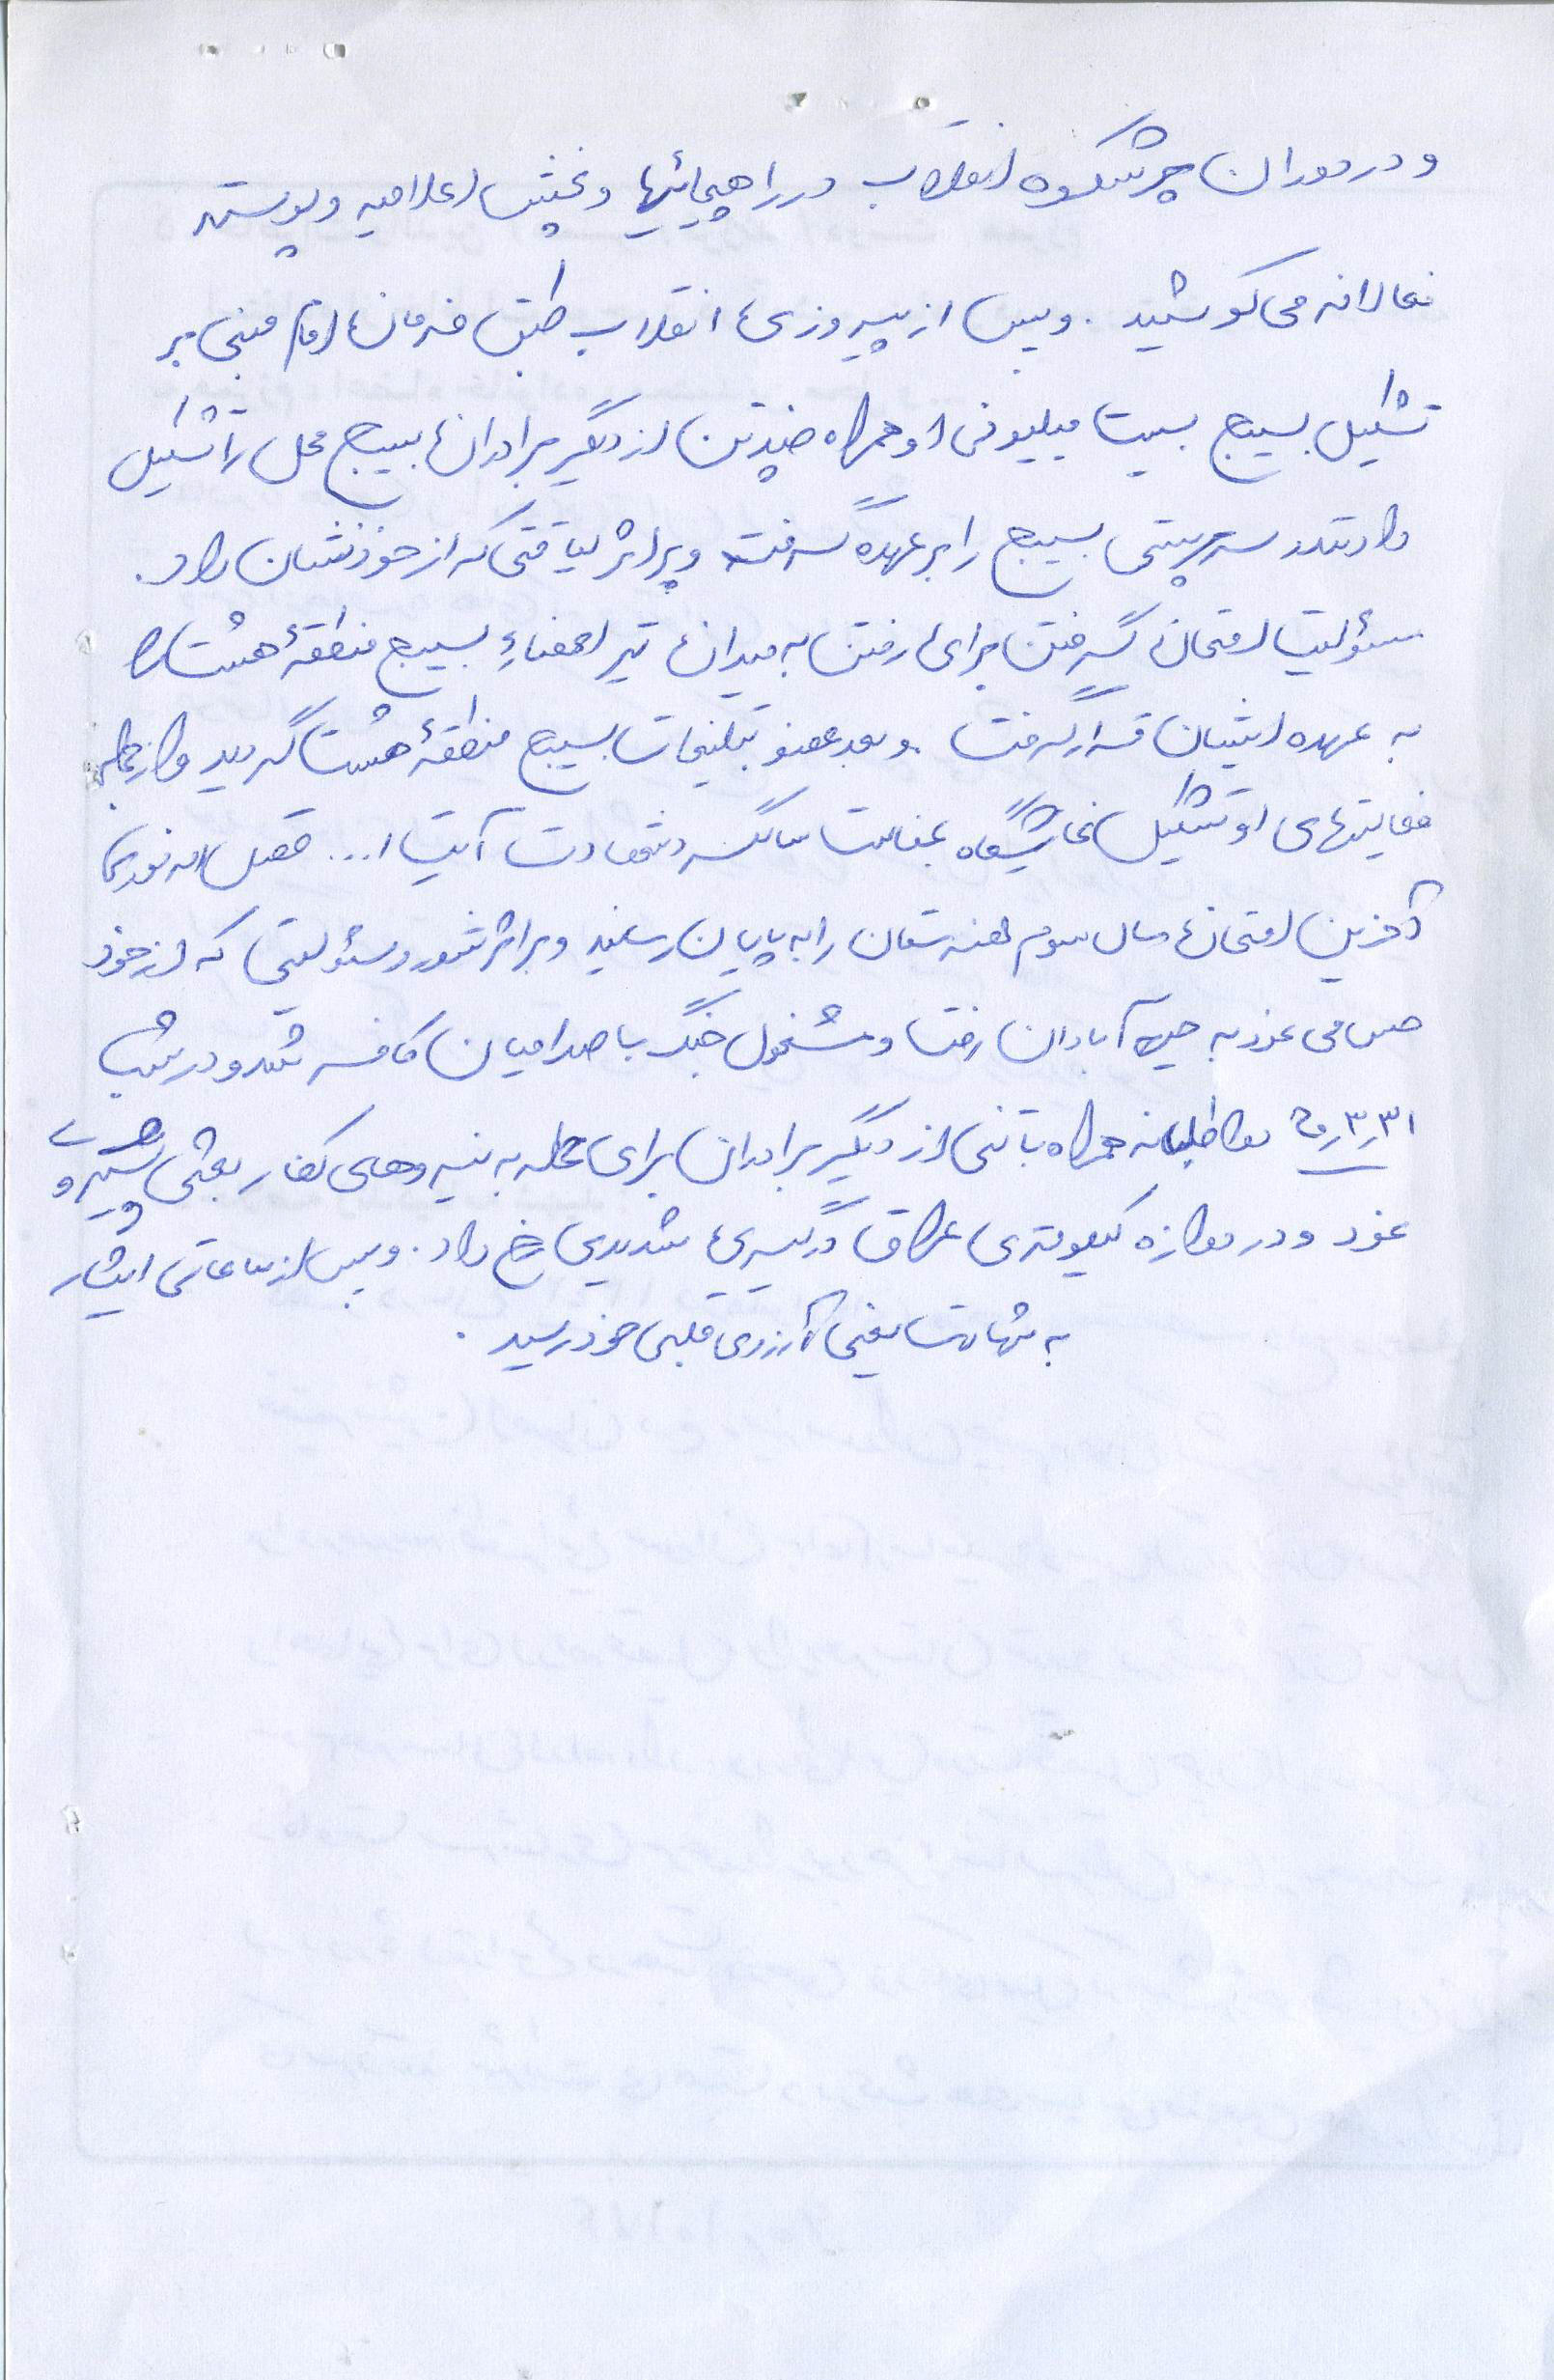 و در دوران پرشکوه انقلاب در راهپیمائیها و پخش اعلامیه و پوستر
فعالانه می کوشید. و پس از پیروزی انقلاب طبق فرمان امام مبنی بر
تشکیل بسیج بیست میلیونی او همراه چند تن از دیگر برادران بسیج محل را تشکیل
دادند و سرپرستی بسیج را بر عهده گرفت و بر اثر لیاقتی که از خود نشان داد.
مسئولیت امتحان گرفتن برای رفتن به میدان تیر اعضاء بسیج منطقهٔ هشت
به عهده ایشان قرار گرفت. و بعد عضو تبلیغات بسیج منطقهٔ هشت گردید و از جمله
فعالیتهای او تشکیل نمایشگاه بمناسبت سالگرد شهادت آیت ا... فضل اله نوری
آخرین امتحان سال سوم هنرستان را به پایان رسانید و بر اثر شور و مسئولیتی که از خود
حس می نمود به جبهه آبادان رفت و مشغول جنگ با صدامیان کافر شد و در شب
۳۱ر۳ر۶۰ داوطلبانه همراه با تنی از دیگر برادران برای حمله به نیروهای کفار بعثی پیشروی
نمود و در دوازه کیلومتری عراق درگیری شدیدی رخ داد. و پس از ساعاتی ایثار
به شهادت یعنی آرزوی قلبی خود رسید.